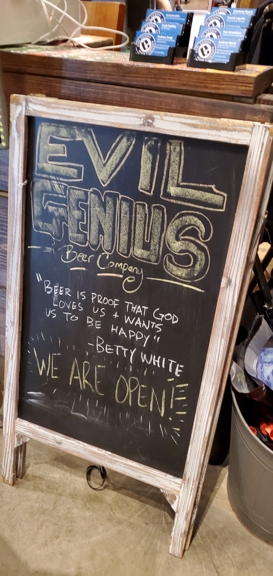 EVIL
GENIUS
Beer Company
"BEER IS PROOF THAT GOD
LOVES US + WANTS
US TO BE HAPPY"
-BETTY WHITE
WE ARE OPEN!